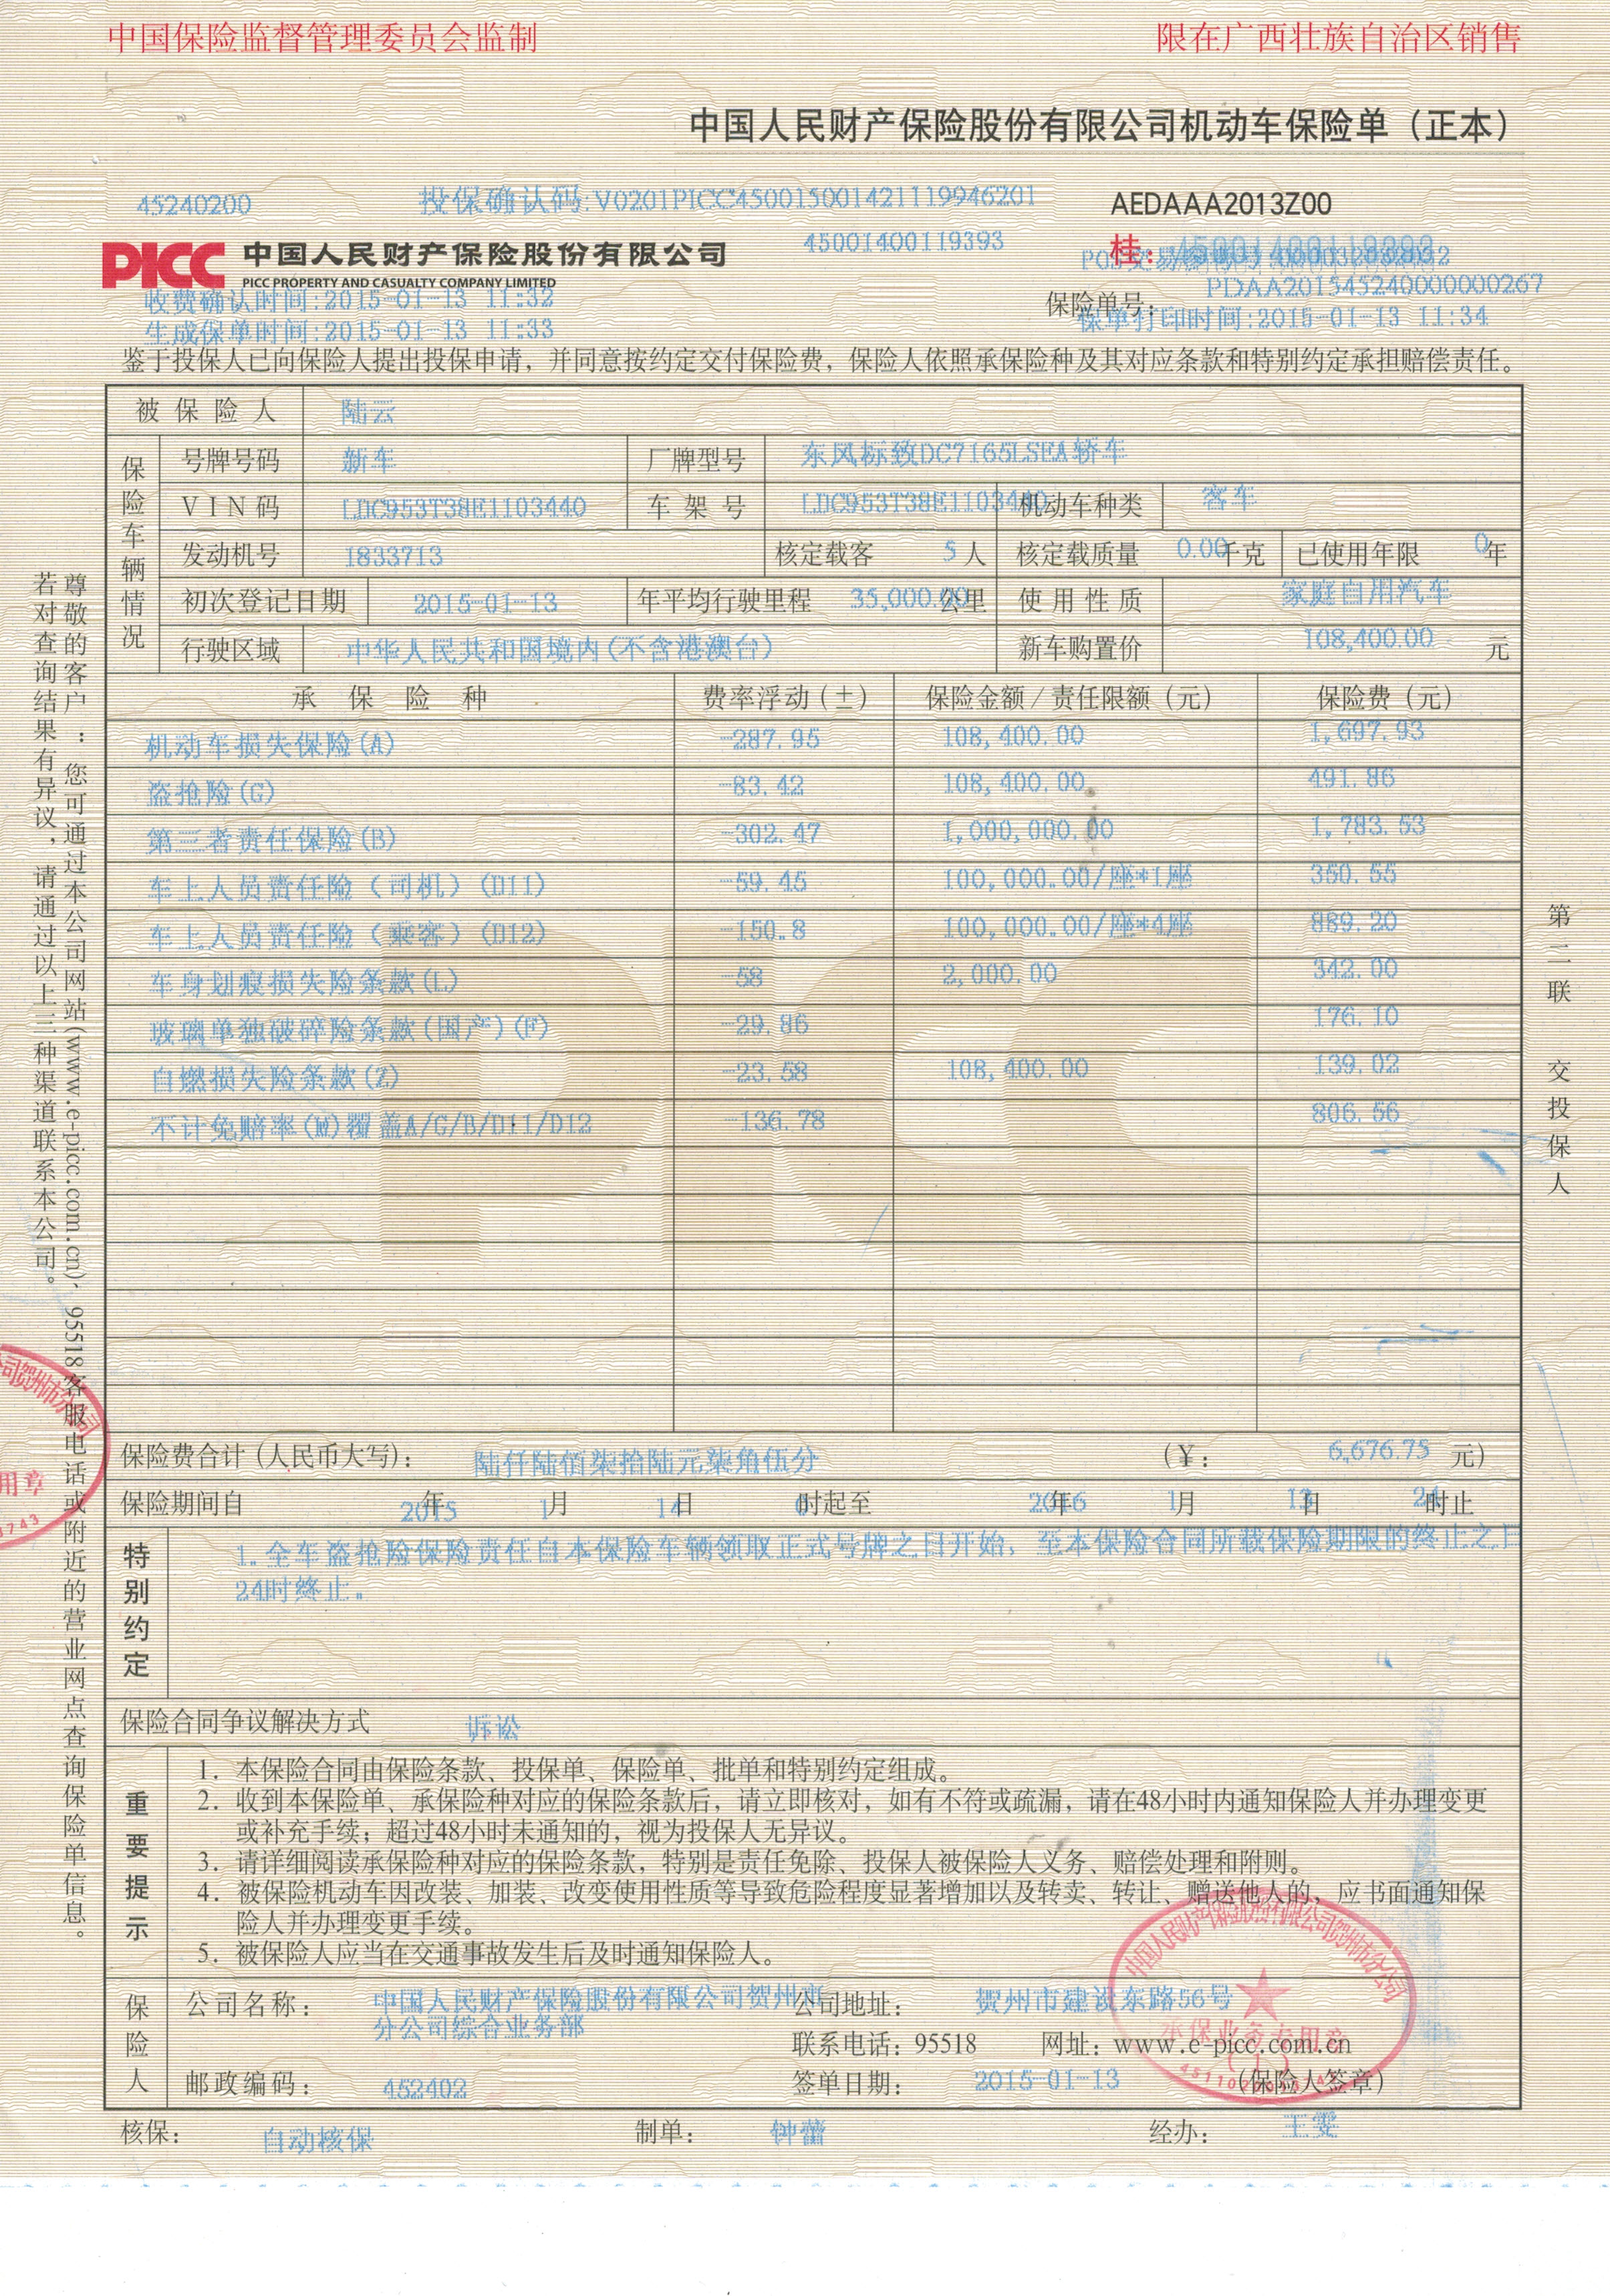 中国保险监督管理委员会监制
限在广西壮族自治区销售
中国人民财产保险股份有限公司机动车保险单（正本）
45240200
投保确认码:V0201PICC450015001421119946201
AEDAAA2013Z00
45001400119393
桂:
PICC 中国人民财产保险股份有限公司
PICC PROPERTY AND CASUALTY COMPANY LIMITED
收费确认时间:2015-01-13 11:32
保险单号: PDAA201545240000000267
生成保单时间:2015-01-13 11:33
保单打印时间:2015-01-13 11:34
鉴于投保人已向保险人提出投保申请，并同意按约定交付保险费，保险人依照承保险种及其对应条款和特别约定承担赔偿责任。
被保险人 陆云
保险车辆情况
号牌号码 新车 厂牌型号 东风标致DC7165LSEA轿车
VIN码 LDC953T38E1103440 车架号 LDC953T38E1103440 机动车种类 客车
发动机号 1833713 核定载客 5人 核定载质量 0.00千克 已使用年限 0年
初次登记日期 2015-01-13 年平均行驶里程 35,000.00公里 使用性质 家庭自用汽车
行驶区域 中华人民共和国境内(不含港澳台) 新车购置价 108,400.00 元
承保险种 费率浮动(±) 保险金额/责任限额(元) 保险费(元)
机动车损失保险(A) -287.95 108,400.00 1,697.93
盗抢险(G) -83.42 108,400.00 491.86
第三者责任保险(B) -302.47 1,000,000.00 1,783.53
车上人员责任险（司机）(D11) -59.45 100,000.00/座*1座 350.55
车上人员责任险（乘客）(D12) -150.8 100,000.00/座*4座 889.20
车身划痕损失险条款(L) -58 2,000.00 342.00
玻璃单独破碎险条款(国产)(F) -29.86 176.10
自燃损失险条款(Z) -23.58 108,400.00 139.02
不计免赔率(M)覆盖A/G/B/D11/D12 -136.78 806.56
保险费合计(人民币大写): 陆仟陆佰柒拾陆元柒角伍分 (¥: 6,676.75 元)
保险期间自 2015年 1月 14日 0时起至 2016年 1月 13日 24时止
特别约定
1.全车盗抢险保险责任自本保险车辆领取正式号牌之日开始，至本保险合同所载保险期限的终止之日
24时终止。
保险合同争议解决方式 诉讼
重要提示
1. 本保险合同由保险条款、投保单、保险单、批单和特别约定组成。
2. 收到本保险单、承保险种对应的保险条款后，请立即核对，如有不符或疏漏，请在48小时内通知保险人并办理变更
或补充手续；超过48小时未通知的，视为投保人无异议。
3. 请详细阅读承保险种对应的保险条款，特别是责任免除、投保人被保险人义务、赔偿处理和附则。
4. 被保险机动车因改装、加装、改变使用性质等导致危险程度显著增加以及转卖、转让、赠送他人的，应书面通知保
险人并办理变更手续。
5. 被保险人应当在交通事故发生后及时通知保险人。
保险人
公司名称: 中国人民财产保险股份有限公司贺州市 公司地址: 贺州市建设东路56号
分公司综合业务部
联系电话: 95518 网址: www.e-picc.com.cn
邮政编码: 452402 签单日期: 2015-01-13 (保险人签章)
核保: 自动核保 制单: 钟蕾 经办: 王雯
尊敬的客户：您可通过本公司网站(www.e-picc.com.cn)、95518客服电话或附近的营业网点查询保险单信息。
若对查询结果有异议，请通过以上三种渠道联系本公司。
第二联 交投保人
中国人民财产保险股份有限公司贺州市分公司
承保业务专用章
(1)
司贺州市分公司
用章
3743
PICC